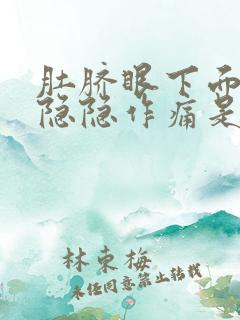 肚脐眼下面
隐隐作痛是
林东梅
未经同意禁止转载